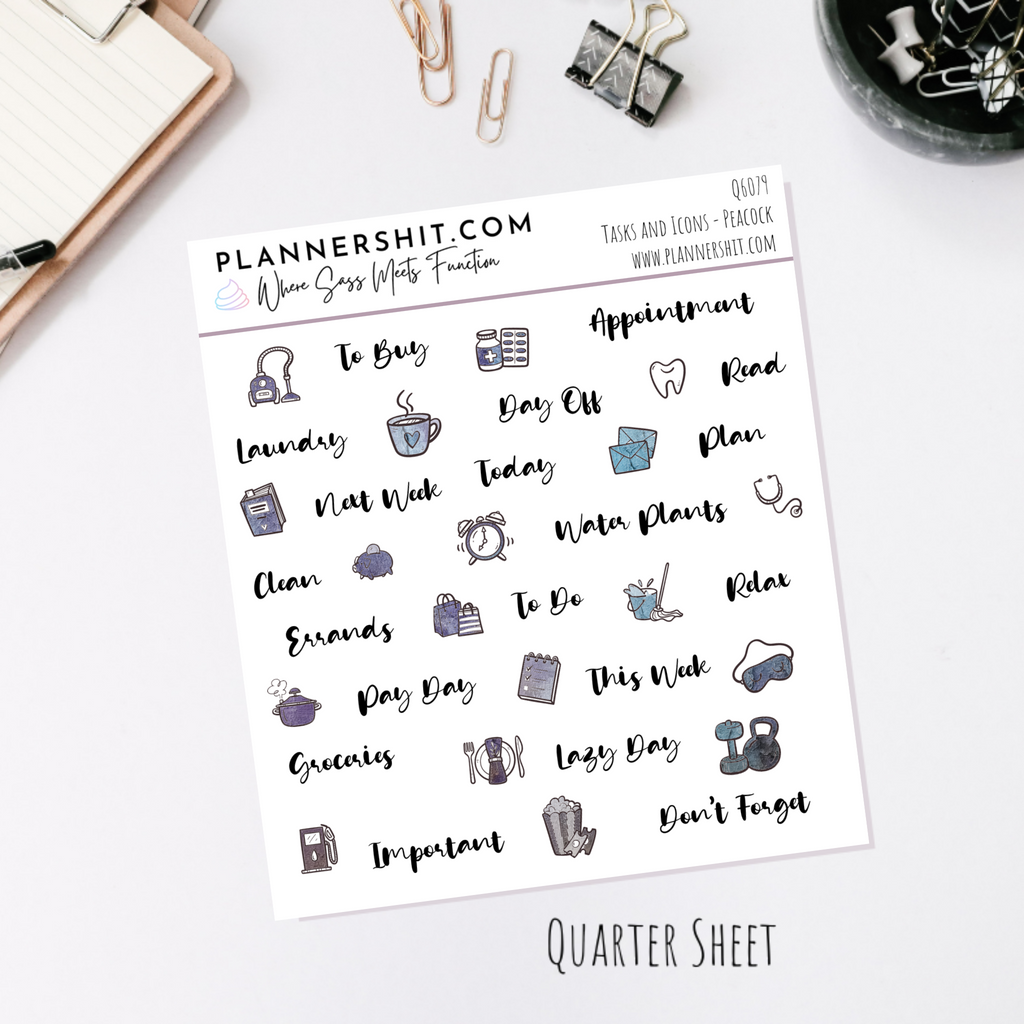 PLANNERSHIT.COM
Where Sass Meets Function
Q6079
Tasks and Icons - Peacock
www.plannershit.com
To Buy
Appointment
Read
Laundry
Day Off
Plan
Next Week
Today
Water Plants
Clean
To Do
Relax
Errands
Pay Day
This Week
Groceries
Lazy Day
Important
Don't Forget
Quarter Sheet